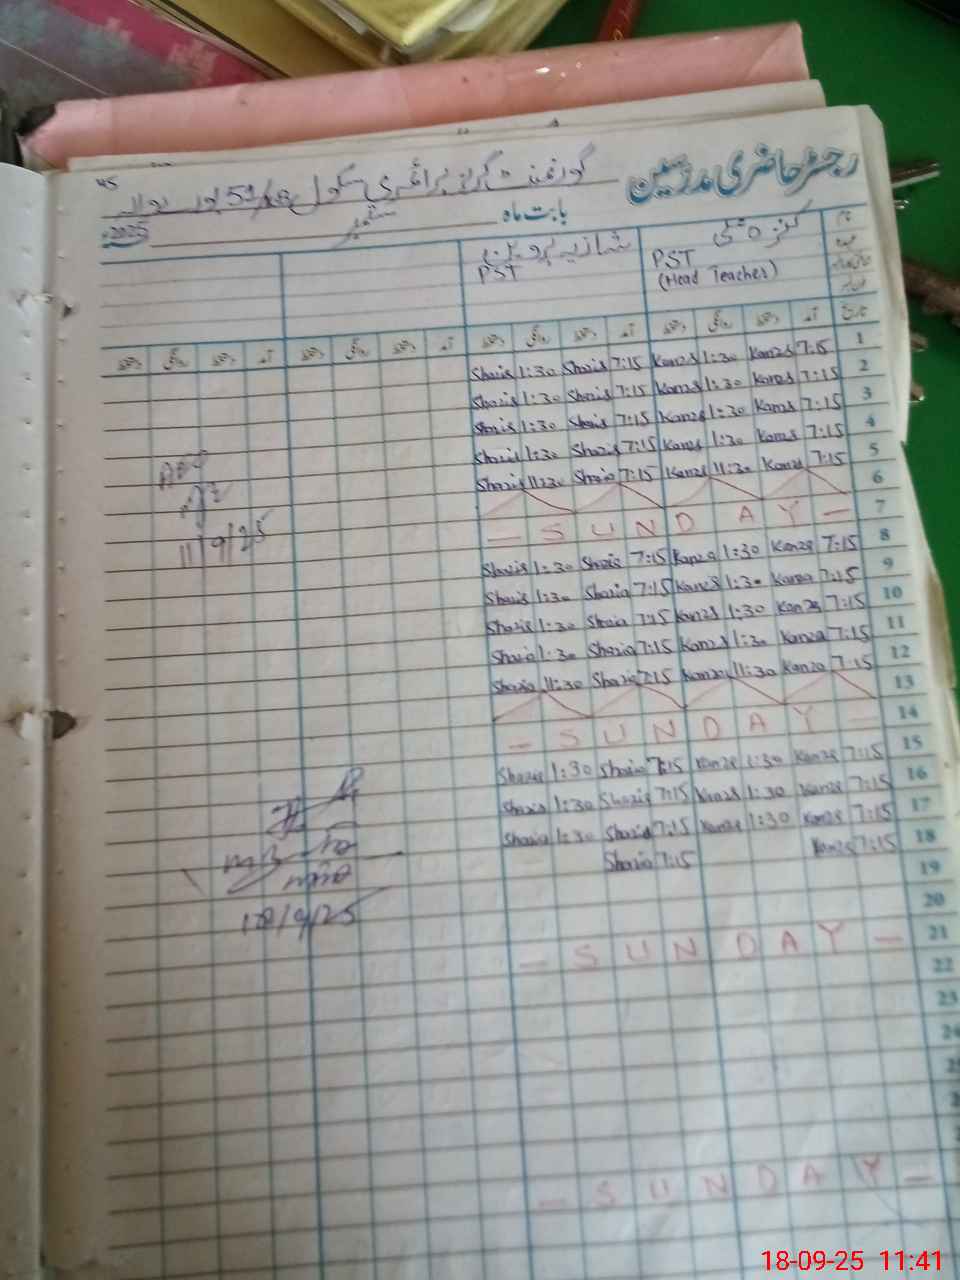 رجسٹر حاضری مدرسین گورنمنٹ گرلز پرائمری سکول
45
بابت ماہ ستمبر 2025
نام
PST
(Head Teacher)
شازیہ پروین
PST
تاریخ آمد دستخط روانگی دستخط آمد دستخط روانگی دستخط آمد دستخط روانگی دستخط آمد دستخط روانگی دستخط
1 7:15 Kanza 1:30 Kanza 7:15 Shazia 1:30 Shazia
2 7:15 Kanza 1:30 Kanza 7:15 Shazia 1:30 Shazia
3 7:15 Kanza 1:30 Kanza 7:15 Shazia 1:30 Shazia
4 7:15 Kanza 1:30 Kanza 7:15 Shazia 1:30 Shazia
5 7:15 Kanza 11:30 Kanza 7:15 Shazia 11:30 Shazia
6
7 - SUNDAY -
8 7:15 Kanza 1:30 Kanza 7:15 Shazia 1:30 Shazia
9 7:15 Kanza 1:30 Kanza 7:15 Shazia 1:30 Shazia
10 7:15 Kanza 1:30 Kanza 7:15 Shazia 1:30 Shazia
11 7:15 Kanza 1:30 Kanza 7:15 Shazia 1:30 Shazia
12 7:15 Kanza 11:30 Kanza 7:15 Shazia 11:30 Shazia
13
14 - SUNDAY -
15 7:15 Kanza 1:30 Kanza 7:15 Shazia 1:30 Shazia
16 7:15 Kanza 1:30 Kanza 7:15 Shazia 1:30 Shazia
17 7:15 Kanza 1:30 Kanza 7:15 Shazia 1:30 Shazia
18 7:15 Kanza 7:15 Shazia
19
20
21 - SUNDAY -
22
23
24
- SUNDAY -
11/9/25
18/9/25
18-09-25 11:41